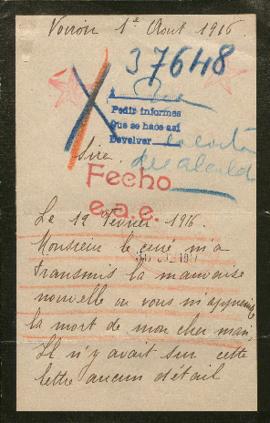 Voiron 1e Aout 1916
37648
A
Pedir informes
Que se hace así
Devolver
Sire
la carta
del alcalde
Fecho
e.a.e.
Le 12 Fevrier 1916.
Monsieur le curé m'a
transmis la mauvaise
nouvelle ou vous m'appreniez
la mort de mon cher mari,
Il n'y avait sur cette
lettre aucun détail